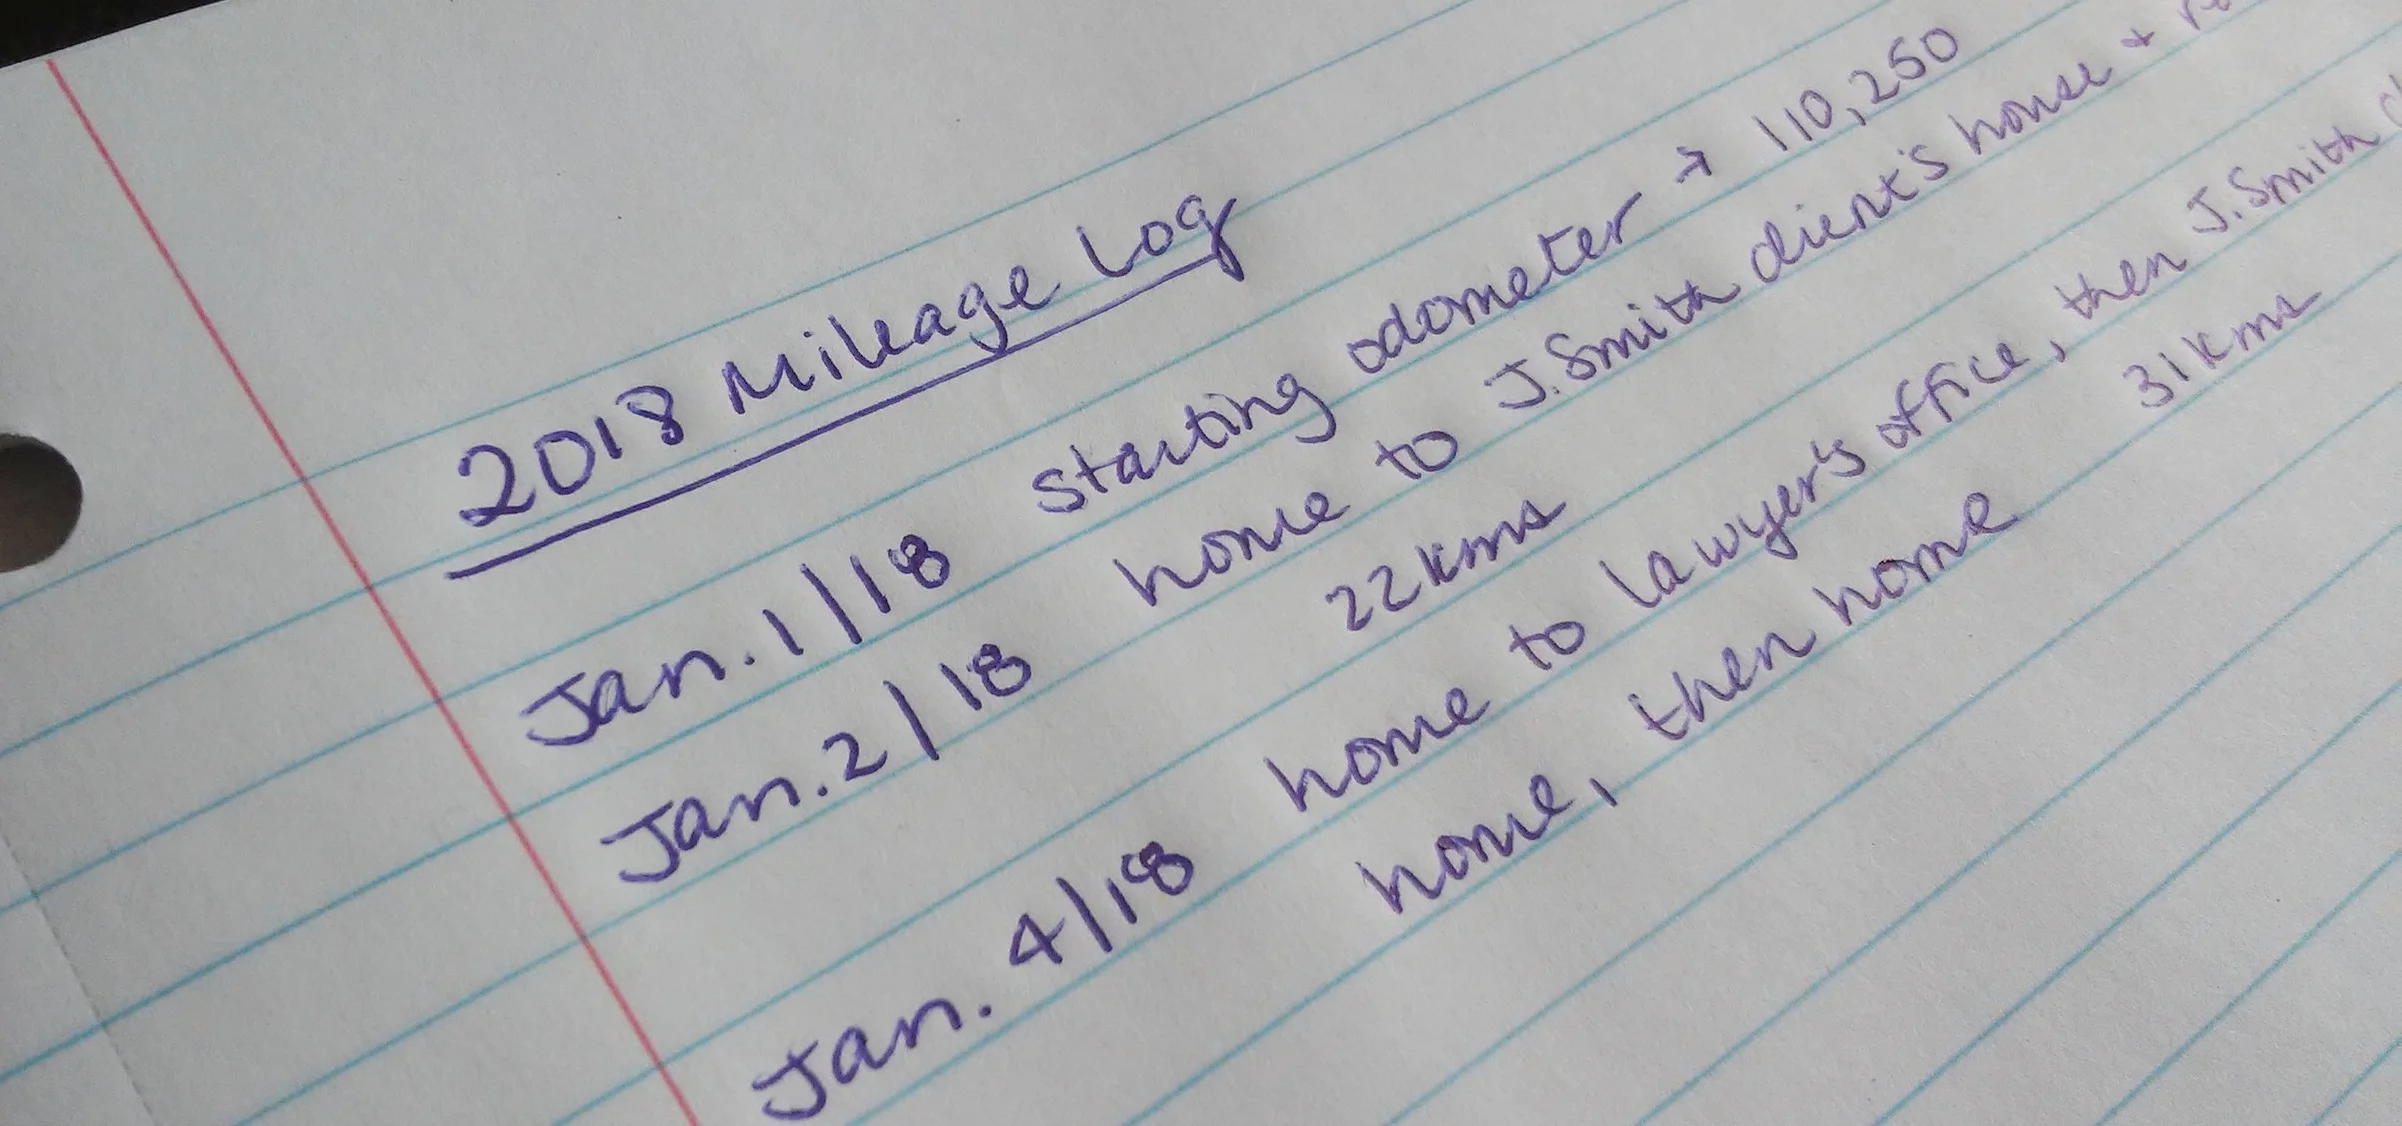 2018 Mileage Log
Jan. 1/18 starting odometer → 110,250
Jan. 2/18 home to J. Smith client's house +
22 kms
Jan. 4/18 home to lawyer's office, then J. Smith
home, then home 31 kms